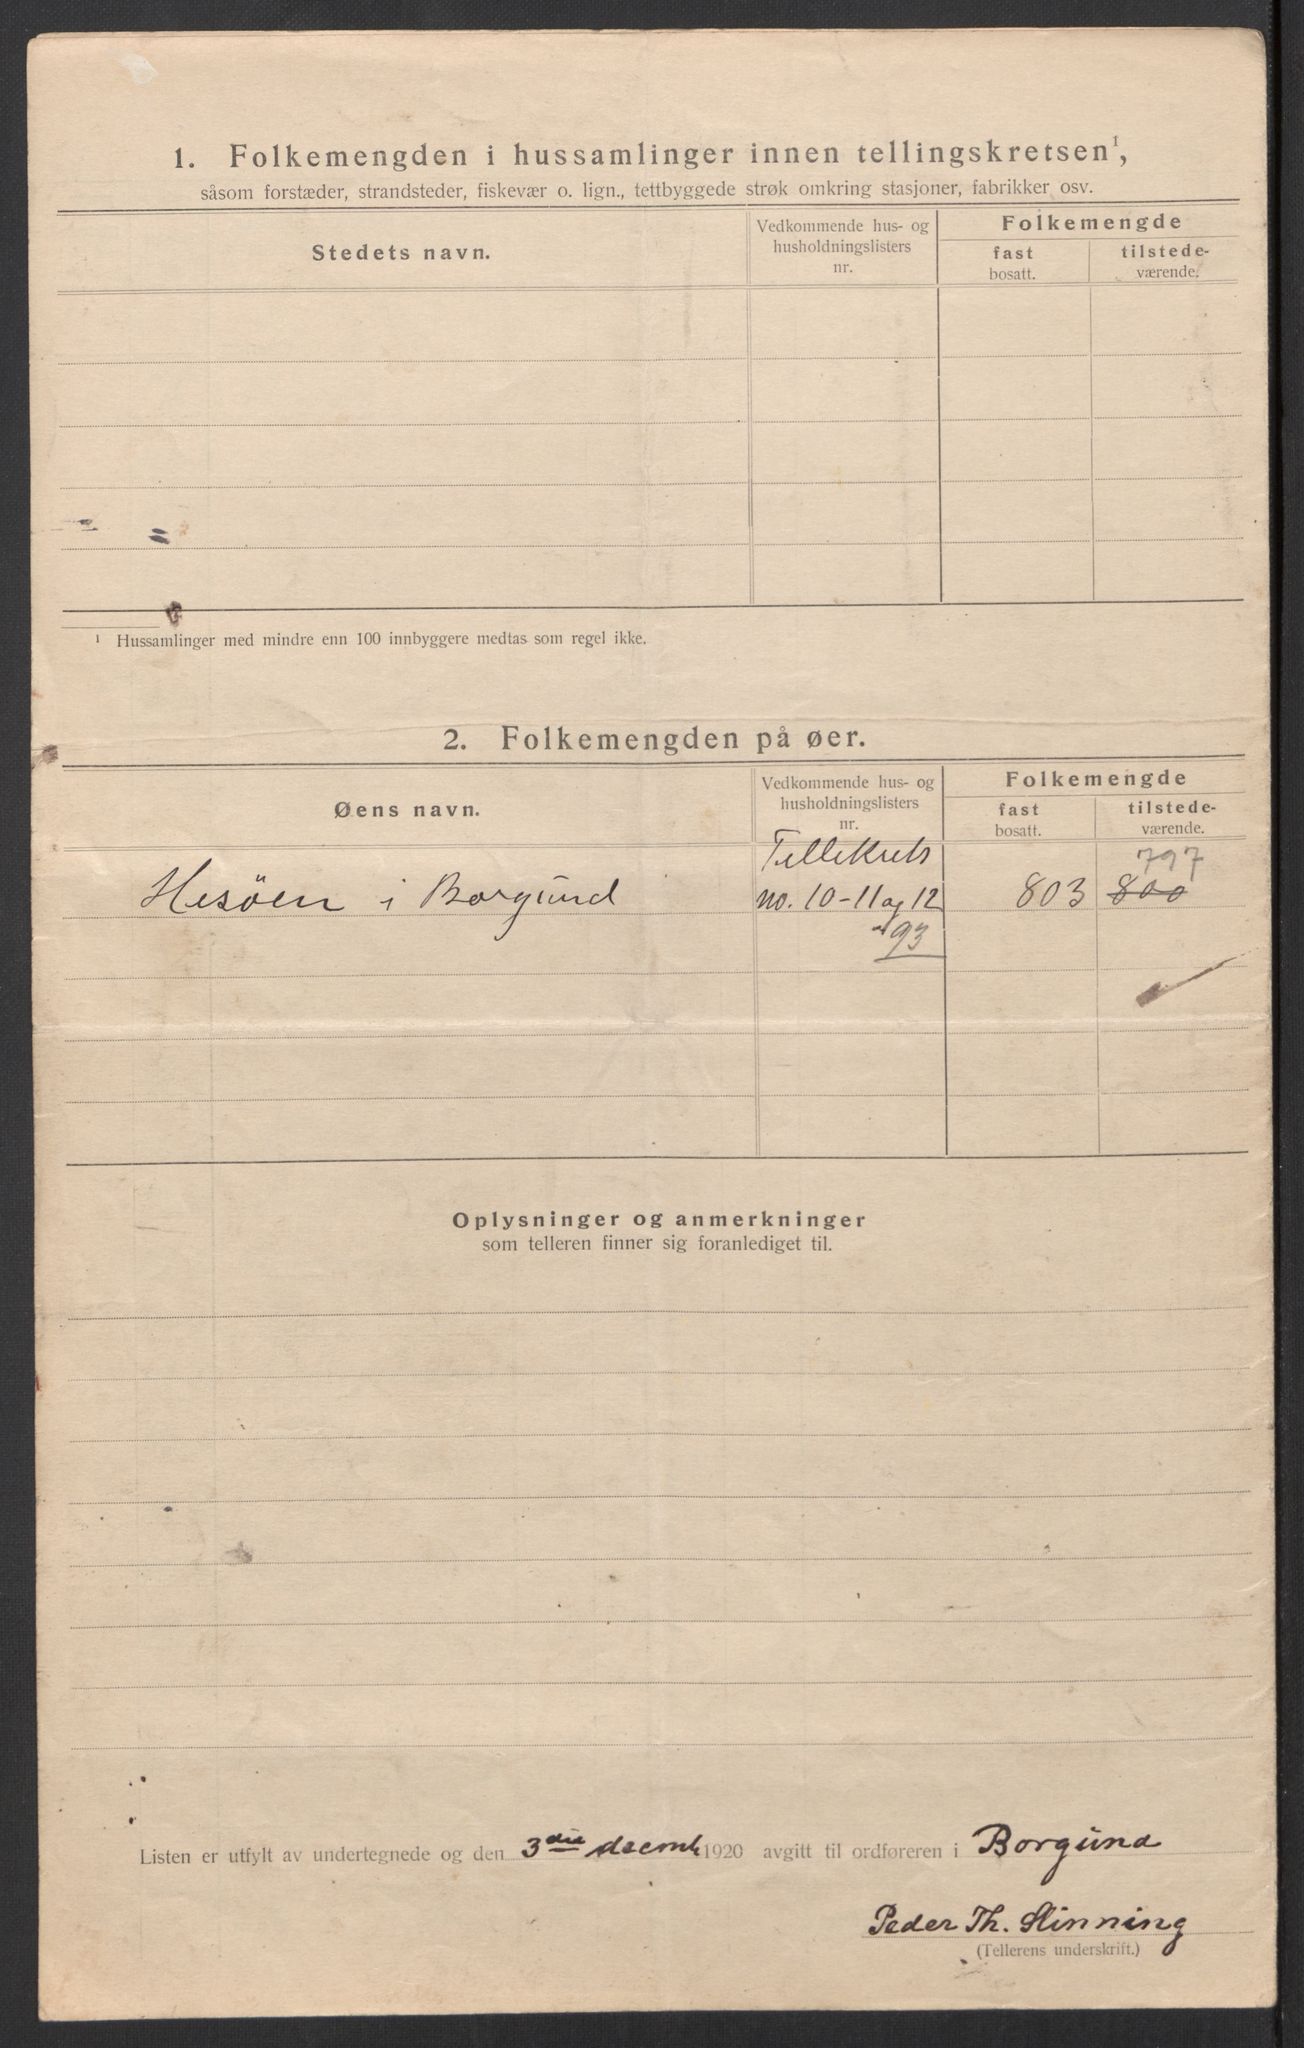 1. Folkemengden i hussamlinger innen tellingskretsen¹,
såsom forstæder, strandsteder, fiskevær o. lign., tettbyggede strøk omkring stasjoner, fabrikker osv.
Stedets navn.
Vedkommende hus- og
husholdningslisters
nr.
Folkemengde
fast
bosatt.
tilstede-
værende.
¹ Hussamlinger med mindre enn 100 innbyggere medtas som regel ikke.
2. Folkemengden på øer.
Øens navn.
Vedkommende hus- og
husholdningslisters
nr.
Folkemengde
fast
bosatt.
tilstede-
værende.
Tellekrets
797
Hesöen i Borgund no. 10-11 og 12 803 800
93
Oplysninger og anmerkninger
som telleren finner sig foranlediget til.
Listen er utfylt av undertegnede og den 3die decmb 1920 avgitt til ordføreren i Borgund
Peder Th. Slinning
(Tellerens underskrift.)